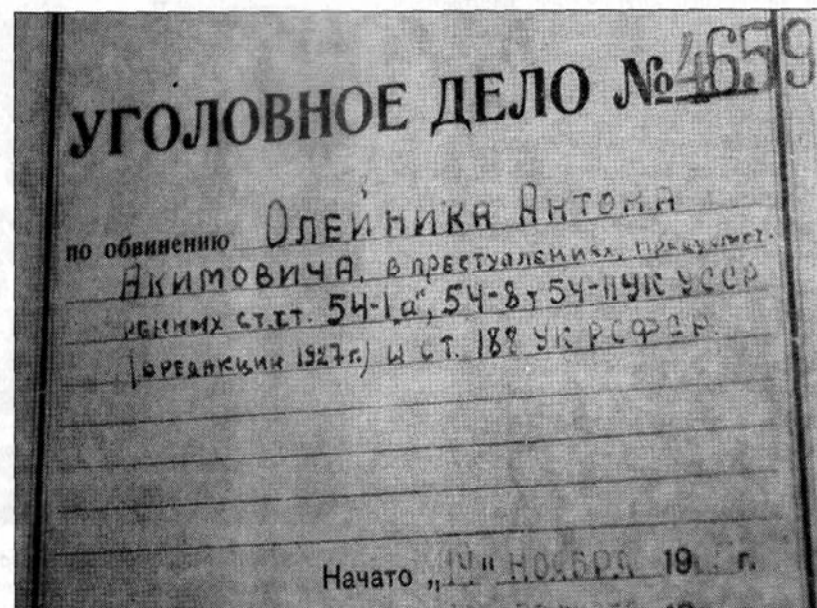 УГОЛОВНОЕ ДЕЛО № 4659
по обвинению ОЛЕЙНИКА АНТОНА
АКИМОВИЧА, в преступлениях, предусмот-
ренных ст.ст. 54-1„а", 54-8, 54-11 УК УССР
(в редакции 1927 г.) и ст. 188 УК РСФСР.
Начато „14" НОЯБРЯ 19 г.